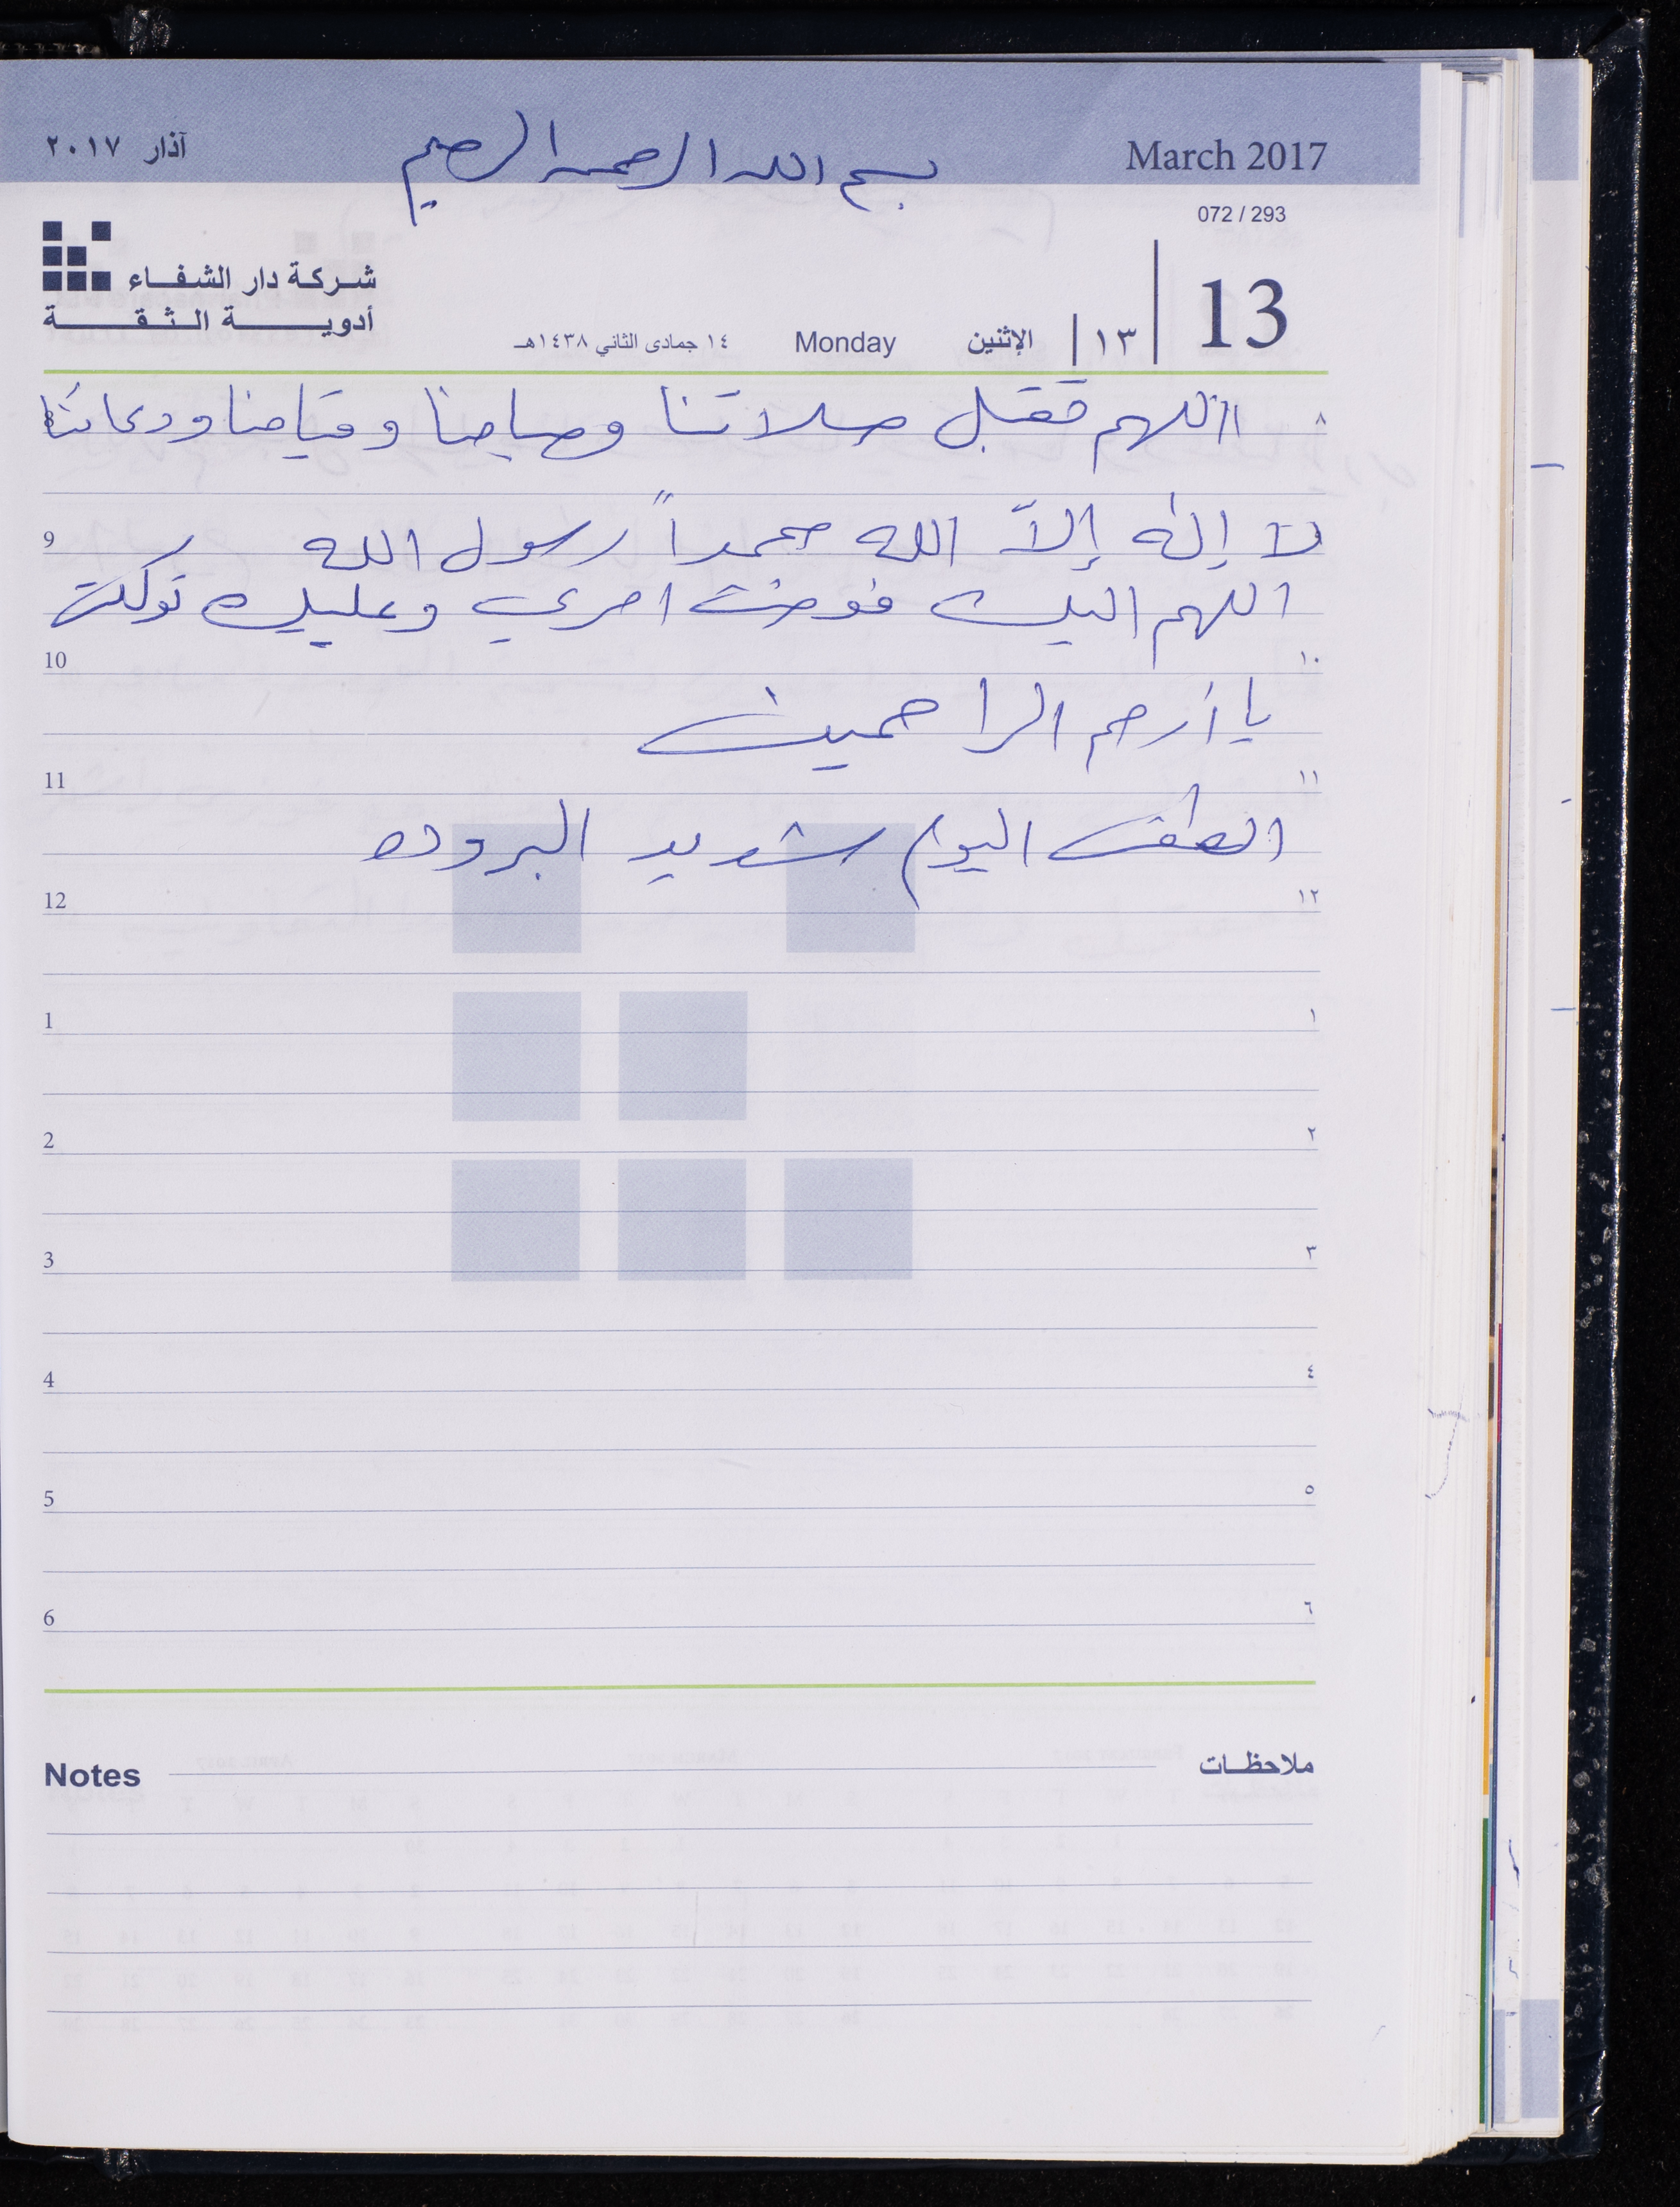 March 2017
بسم الله الرحمن الرحيم
آذار ٢٠١٧
072 / 293
شركة دار الشفاء
أدوية الثقة
13
١٣
الإثنين
Monday
١٤ جمادى الثاني ١٤٣٨هـ
٨ اللهم تقبل صلاتنا وصيامنا وقيامنا ودعائنا
لا إله إلاّ الله محمداً رسول الله 9
اللهم اليك فوضت امري وعليك توكلت
١٠ 10
يا أرحم الراحمين
١١ 11
الطقس اليوم شديد البروده
١٢ 12
١ 1
٢ 2
٣ 3
٤ 4
٥ 5
٦ 6
ملاحظات Notes